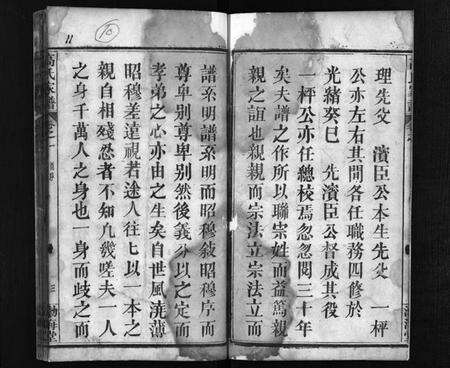 理先父　濱臣公本生先父　一枰
公亦左右其間各任職務四修於
光緒癸巳　先濱臣公督成其役
一枰公亦任總校焉忽忽閱三十年
矣夫譜之作所以聯宗姓而益篤親
親之誼也親親而宗法立宗法立而
譜系明譜系明而昭穆敘昭穆序而
尊卑别尊卑别然後義分以之定而
孝弟之心亦由之生矣自世風澆薄
昭穆差遠視若途人往七以一本之
親自相殘忍者不知凡幾嗟夫一人
之身千萬人之身也一身而歧之而
高氏家譜
卷之一
三
渤海堂
11
10